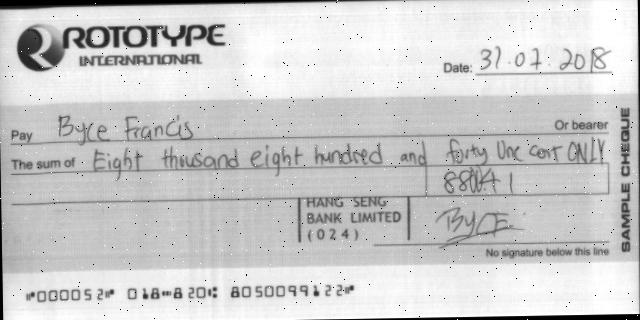 ROTOTYPE
INTERNATIONAL
Date: 31.07.2018
Pay Byce Francis Or bearer
The sum of Eight thousand eight hundred and forty One cent ONLY
88041
HANG SENG
BANK LIMITED
(024)
BYCE
No signature below this line
SAMPLE CHEQUE
"000052" 018-820: 8050099122"